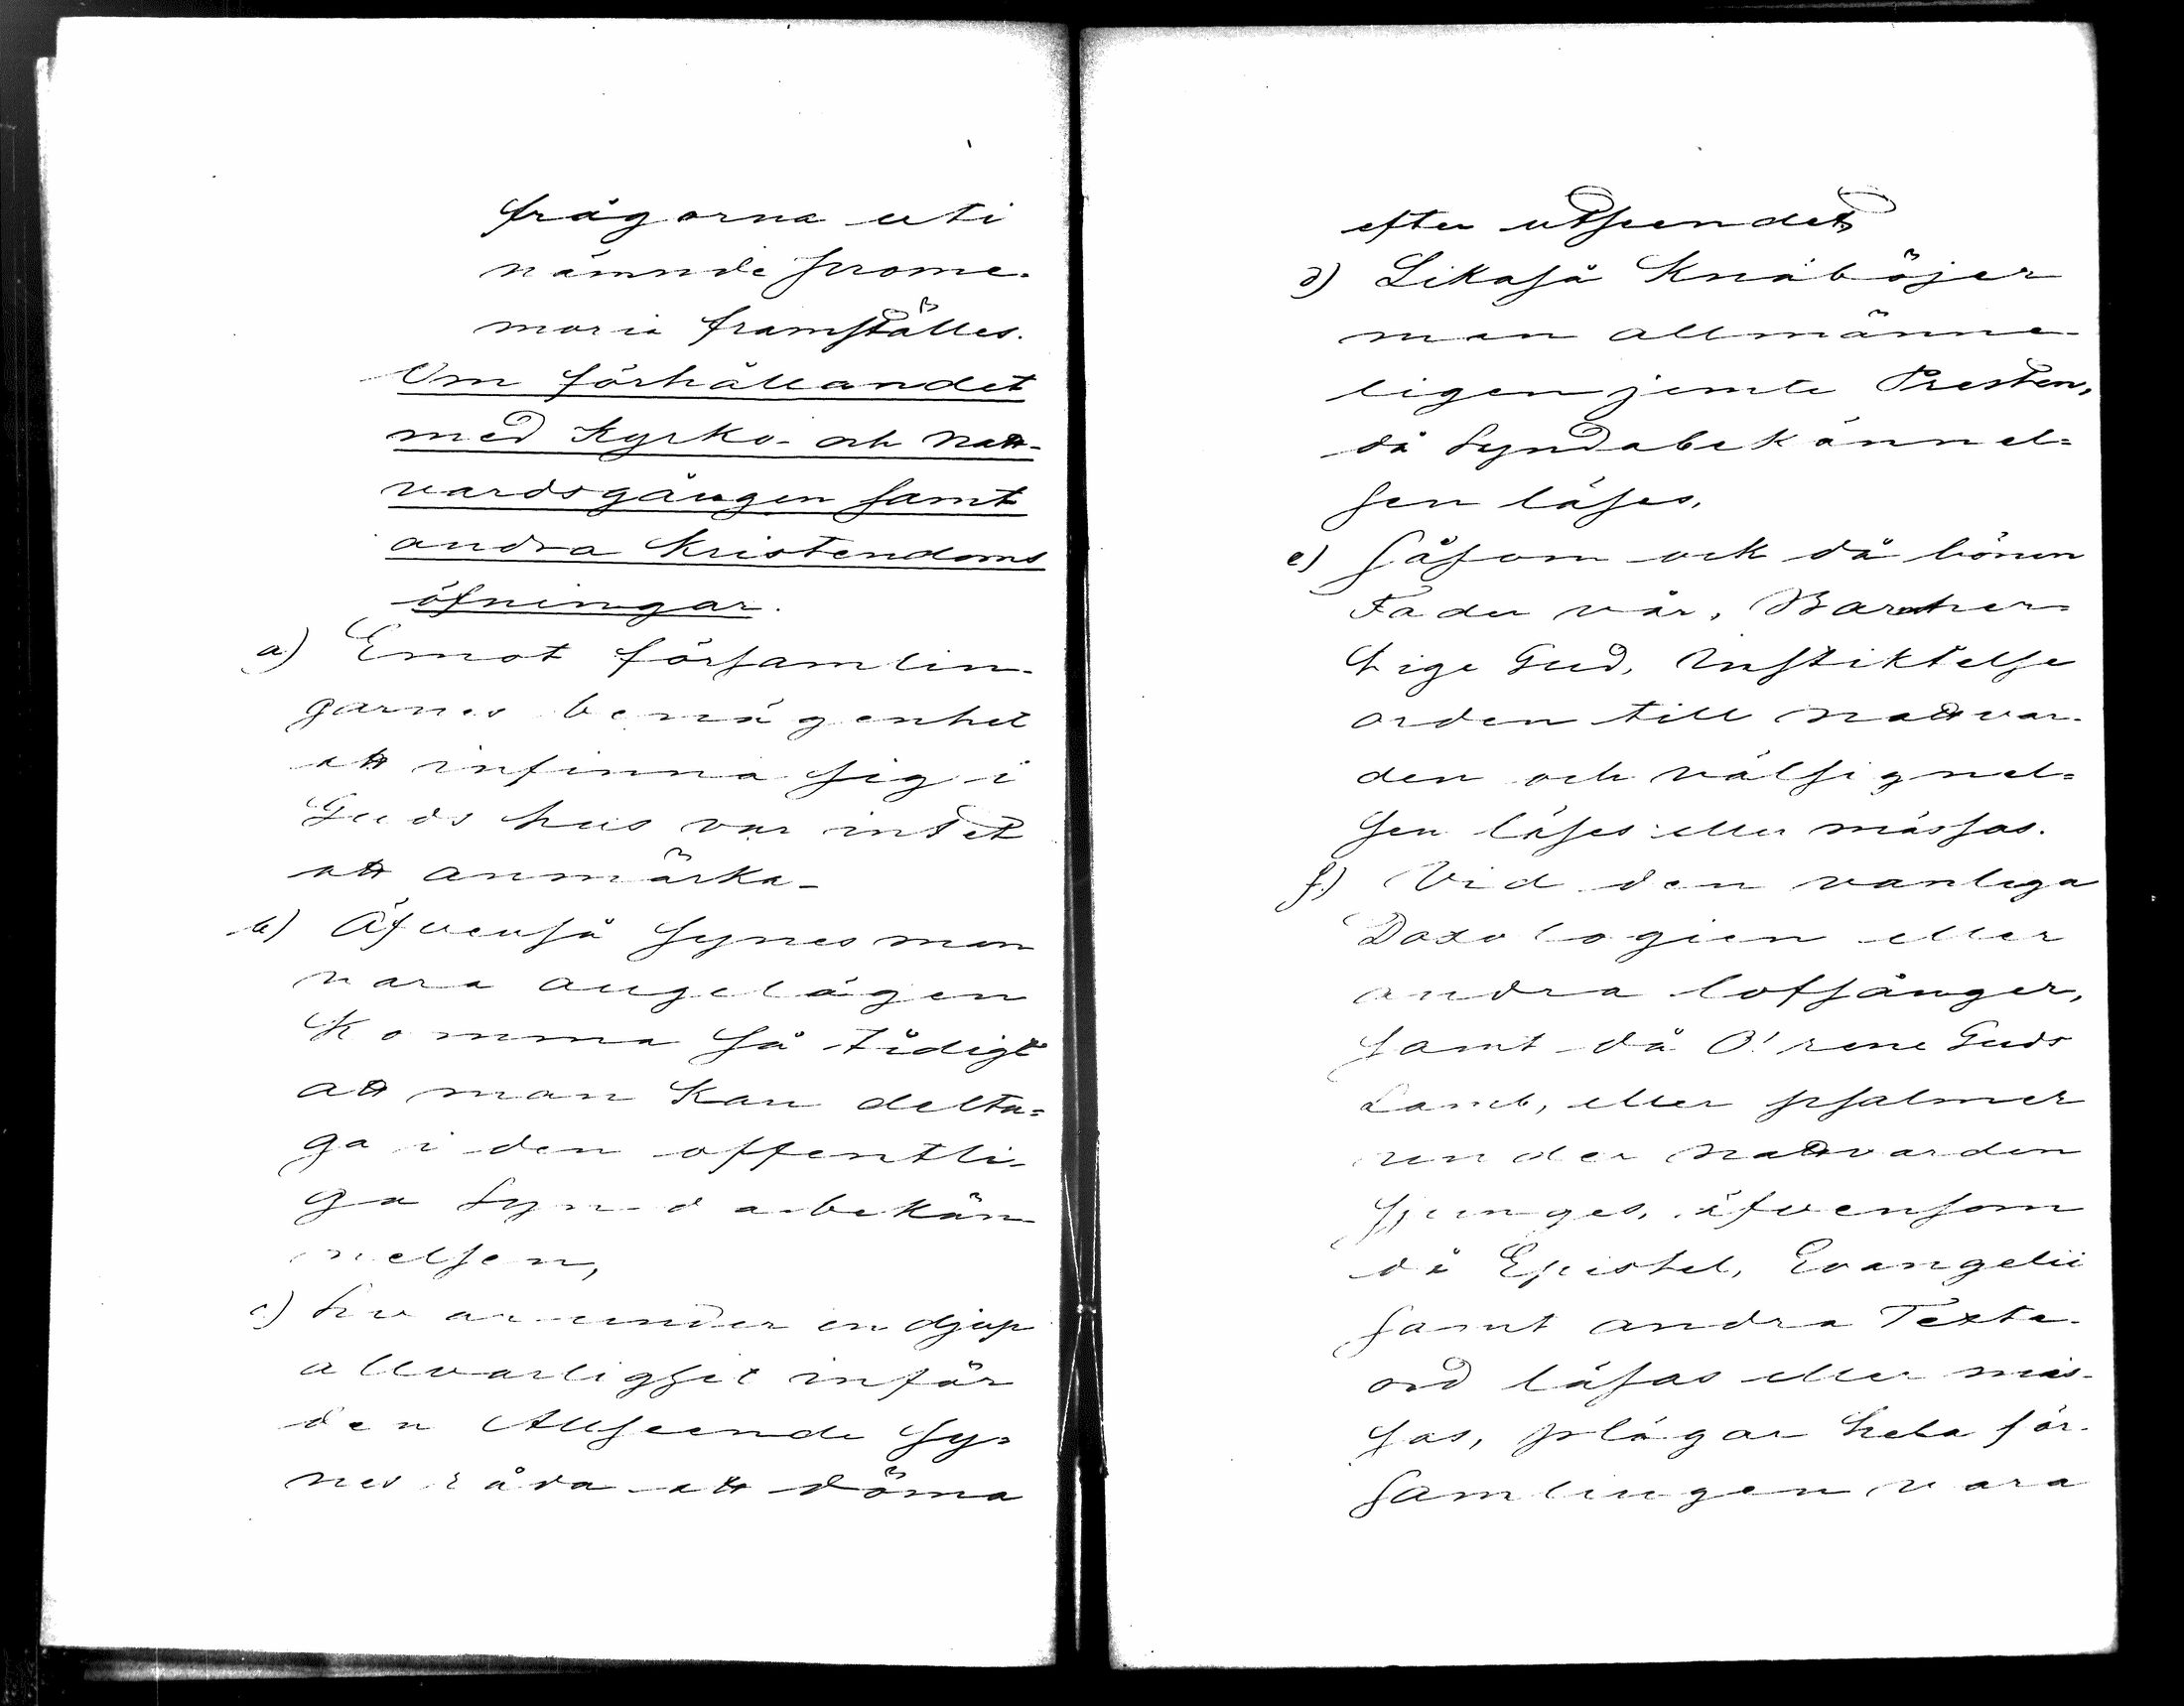 frågorna uti
nämnde prome-
moria framställes.
Om förhållandet
med Kyrko- och natt-
vardsgången samt
andra Kristendoms
öfningar.
a) Emot församlin-
garnes benägenhet
att infinna sig i
Guds hus var intet
att anmärka-
b) Äfvenså synes man
vara angelägen
Komma så tidigt
att man Kan delta=
ga i den offentli-
ga Syndabekän
nelsen,
c) hvarunder en djup
allvarlighet inför
den Allseende sy=
nes råda att döma
efter utseendet
d) Likaså Knäböjer
man allmänne-
ligen jemte Presten,
då Syndabekännel=
sen läses,
e) Såsom ock då bönen
Fader vår, Barmher-
tige Gud, Instiktelse
orden till nattvar-
den och välsignel=
sen läses eller mässas.
f.) Vid den vanliga
Doxologien eller
andra lofsånger,
samt då O! rene Guds
Lamb, eller psalmer
under nattvarden
sjunges, äfvensom
då Epistel, Evangelii
samt andra Texte-
ord läsas eller mäs-
sas, plägar hela för-
samlingen vara